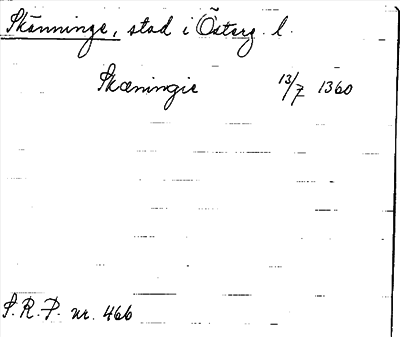 Skänninge, stad i Österg. l.
Skæningie 13/7 1360
S.R.P. nr. 466